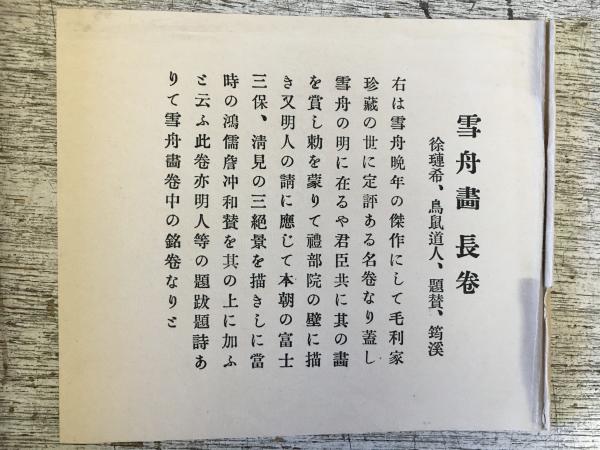 雪舟畫長卷
徐璉希、鳥鼠道人、題賛、筠溪
右は雪舟晩年の傑作にして毛利家
珍藏の世に定評ある名卷なり蓋し
雪舟の明に在るや君臣共に其の畵
を賞し勅を蒙りて禮部院の壁に描
き又明人の請に應じて本朝の富士
三保、淸見の三絕景を描きしに當
時の鴻儒詹冲和賛を其の上に加ふ
と云ふ此卷亦明人等の題跋題詩あ
りて雪舟畵卷中の銘卷なりと